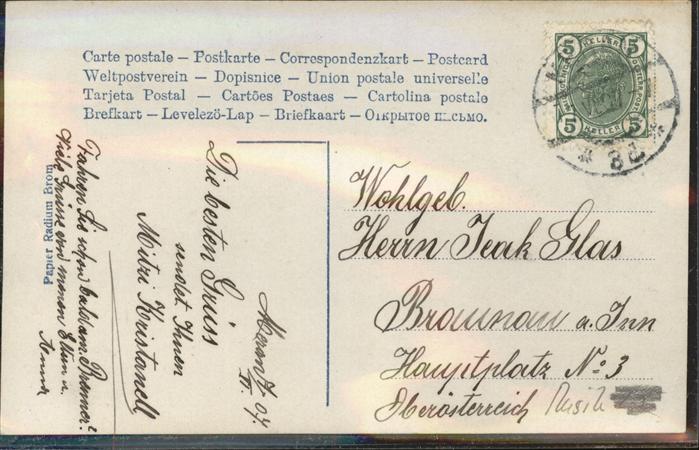 Carte postale – Postkarte – Correspondenzkart – Postcard
Weltpostverein – Dopisnice – Union postale universelle
Tarjeta Postal – Cartões Postaes – Cartolina postale
Brefkart – Levelezö-Lap – Briefkaart – Открытое письмо.
5 HELLER 5
5 HELLER 5
Papier Radium Brom
Meran 07.
Die besten Grüss
sendet Ihnen
Mitzi Kristanell
Fahren Sie schon bald am Brenner?
Viele Grüsse von meinen Eltern u.
Wohlgeb.
Herrn Jeak Glas
Braunau a. Inn
Hauptplatz No. 3
Oberösterreich
Musik